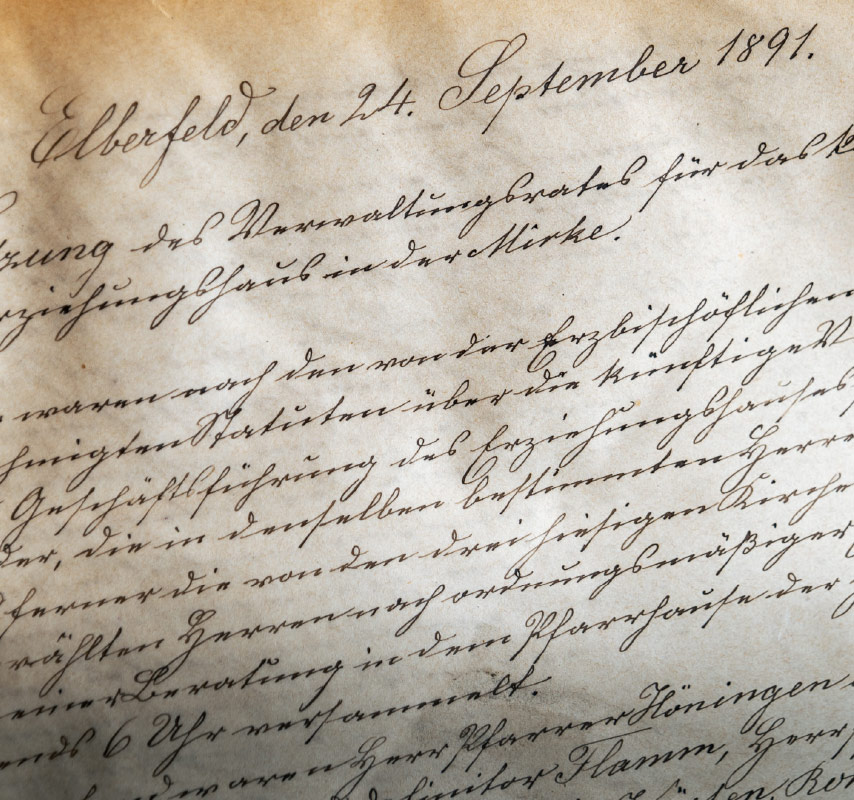 Elberfeld, den 24. September 1891.
zung des Verwaltungsrates für das k
rziehungshaus in der Mirke.
waren nach den von der Erzbischöflichen
hmigten Statuten über die künftige V
Geschäftsführung des Erziehungshauses
der, die in denselben bestimmten Herre
ferner die von den drei hiesigen Kirche
rählten Herren nach ordnungsmäßiger
einer Beratung in dem Pfarrhause der
ends 6 Uhr versammelt.
waren Herr Pfarrer Höningen
Definitor Flamm, Herr